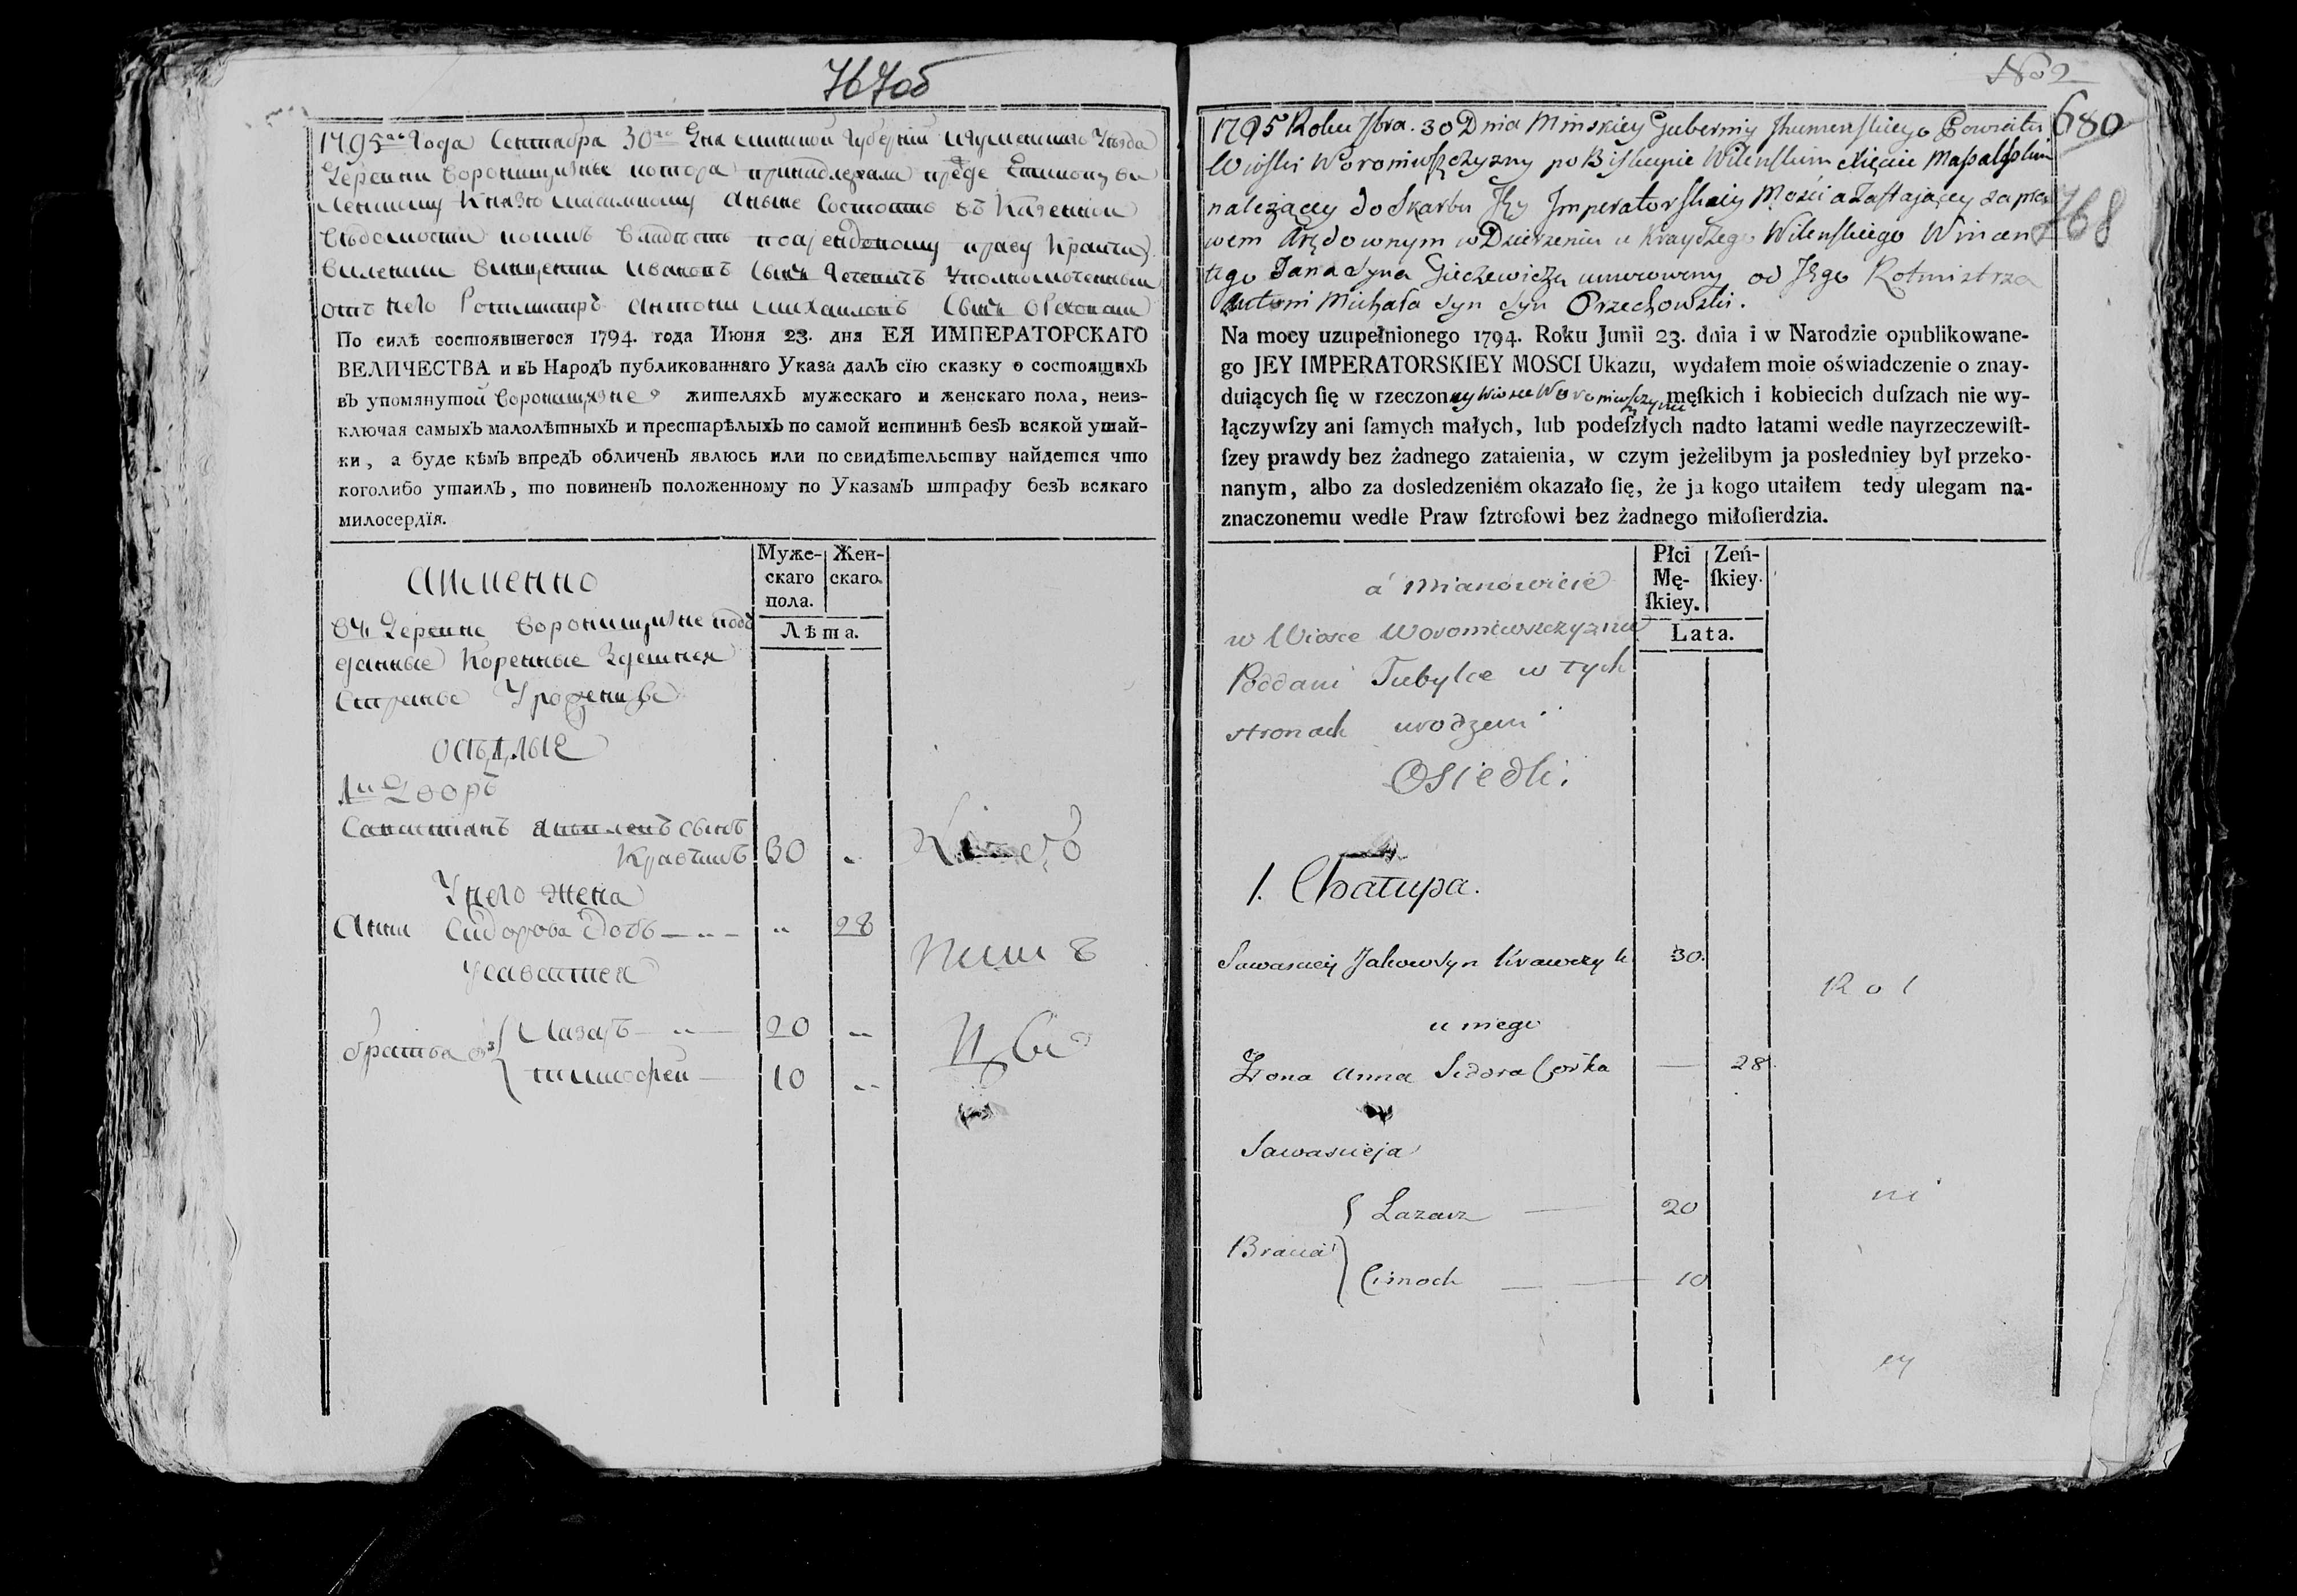 767об
1795го Года Сентября 30го Дня Минской Губернии Игуменскаго Уезда
Деревни Воронищизны котора принадлежала прежде Епископу Ви
ленскому Князю Масалскому а ныне Состоитъ въ Казенном
Ведомости коимъ Владеетъ по арендовному праву Крайчий
Виленский Винцентий Ивановъ Сынъ Гечевичъ Уполномоченный
отъ него Ротмистръ Антони Михайловъ Сынъ Ореховский
По силѣ состоявшегося 1794. года Июня 23. дня ЕЯ ИМПЕРАТОРСКАГО
ВЕЛИЧЕСТВА и въ Народъ публикованнаго Указа далъ сїю сказку о состоящихъ
въ упомянутой Воронищизне жителяхъ мужескаго и женскаго пола, неиз-
ключая самыхъ малолѣтныхъ и престарѣлыхъ по самой истиннѣ безъ всякой утай-
ки, а буде кѣмъ впредъ обличенъ явлюсь или по свидѣтельству найдется что
коголибо утаилъ, то повиненъ положенному по Указамъ штрафу безъ всякаго
милосердїя.
Муже-
скаго
пола.
Жен-
скаго.
Лѣта.
Аименно
Въ Деревне Воронищизне подъ
данные Коренные Здешнея
Стране Уроженце
оседлые
1й Дворъ
сынъ
Кравчикъ 30 „
У него жена
Анна Сидорова Дочь „ 28
У Савастея
братья его { Лазарь 20 „
Тимофей 10 „
No 2
680
768
1795 Roku 7bra. 30 Dnia Minskiey Gubernij Ihumenskiego Powiatu
Wioski Woroniewszczyzny po Biskupie Wilenskim Xięciu Massalskim
należącey do Skarbu Jey Imperatorskiey Mości a Zastaiącey za pra
wem Arędownym w Dzierżeniu u Krayczego Wilenskiego Wincen
tego Jana Syna Gieczewicza umocowany od Jego Rotmistrza
Antoni Michała Syn Syn Orzechowski.
Na mocy uzupełnionego 1794. Roku Junii 23. dnia i w Narodzie opublikowane-
go JEY IMPERATORSKIEY MOSCI Ukazu, wydałem moie oświadczenie o znay-
duiących ſię w rzeczoney Wiosce Woroniewszczyznie męſkich i kobiecich duſzach nie wy-
łączywſzy ani ſamych małych, lub podeſzłych nadto latami wedle nayrzeczewiſt-
ſzey prawdy bez żadnego zataienia, w czym jeżelibym ja posledniey był przeko-
nanym, albo za dosledzeniem okazało ſię, że ja kogo utaiłem tedy ulegam na-
znaczonemu wedle Praw ſztrofowi bez żadnego miłoſierdzia.
Płci
Mę-
ſkiey.
Zeń-
ſkiey.
Lata.
á mianowicie
w Wiosce Woroniewszczyznie
Poddani Tubylce w tych
stronach urodzeni
Osiedli
1. Chatupa.
Sawasciey Jakow Syn Krawczyk 30.
u niego
Żona Anna Sidora Corka — 28
Sawascieja
Bracia { Lazarz — 20
Cimoch — 10